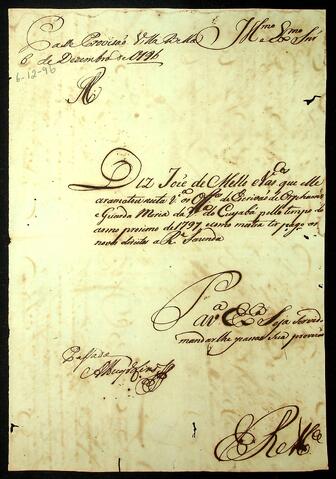 Passe Provisão Villa Bella
6 de Dezembro de 1796
Illmo e Exmo Snr
6-12-96
Diz João de Mello e Vas que elle
arematou nesta os Offos de Escrivão de Orphaons
e Guarda Meria da Va do Cuyabá pello tempo do
anno proximo de 1797, e como mostra ter pago os
novos direitos a Rl Fazenda
P a V Exa Seja Servido
mandarlhe passar sua provizão
Passada
E R Mce